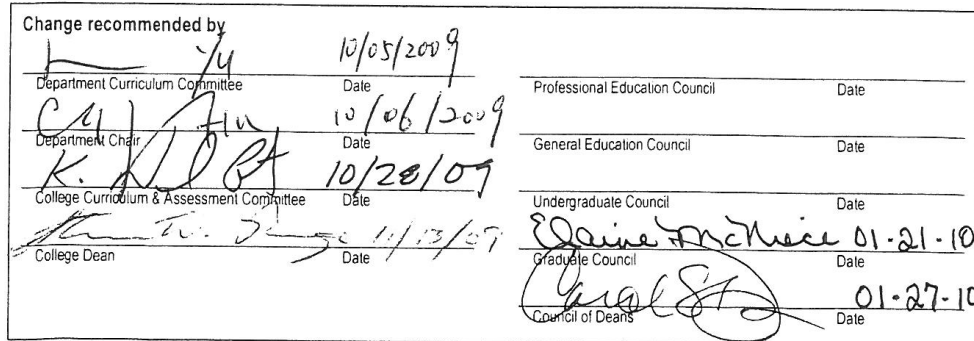 Change recommended by
10/05/2009
Department Curriculum Committee Date
10/06/2009
Department Chair Date
K. 10/28/09
College Curriculum & Assessment Committee Date
11/13/09
College Dean Date
Professional Education Council Date
General Education Council Date
Undergraduate Council Date
Elaine McNiece 01-21-10
Graduate Council Date
Carol 01-27-10
Council of Deans Date